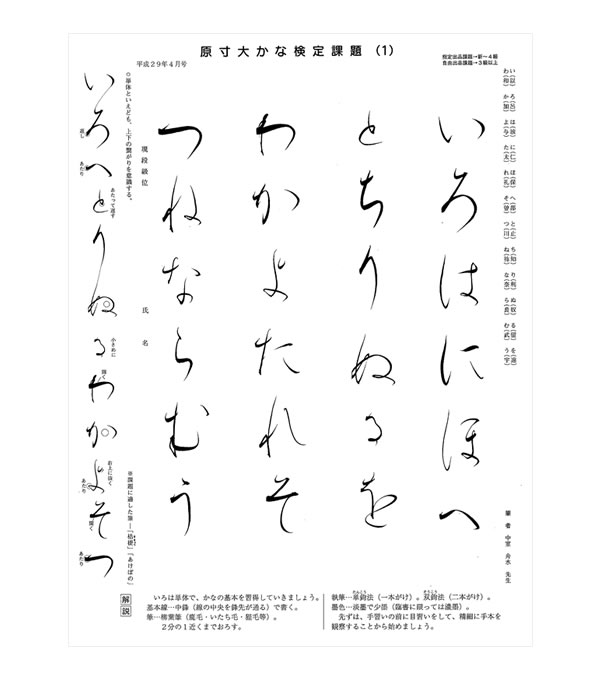 原寸大かな検定課題 (1)
平成29年4月号
規定出品課題→新〜4級
自由出品課題→3級以上
い(以) ろ(呂) は(波) に(仁) ほ(保) へ(部) と(止) ち(知) り(利) ぬ(奴) る(留) を(遠)
わ(和) か(加) よ(与) た(太) れ(礼) そ(曽) つ(川) ね(祢) な(奈) ら(良) む(武) う(宇)
いろはにほへ
とちりぬるを
わかよたれそ
つねならむう
筆者 中室 舟水 先生
現段級位
氏名
◎単体といえども、上下の繋がりを意識する。
※課題に適した筆―「桔梗」「あけぼの」
いろへとりぬるわかよそつ
返し
あたり
あたって返す
小さめに
強く
右上に抜く
あたり
強く
あたり
解説
いろは単体で、かなの基本を習得していきましょう。
基本線…中鋒(線の中央を鋒先が通る)で書く。
筆…柳葉筆(鹿毛・いたち毛・狸毛等)。
2分の1近くまでおろす。
執筆…単鉤法(一本がけ)。双鉤法(二本がけ)。
たんこう
そうこう
墨色…淡墨で少揩(臨書に限っては濃墨)。
先ずは、手習いの前に目習いをして、精細に手本を
観察することから始めましょう。